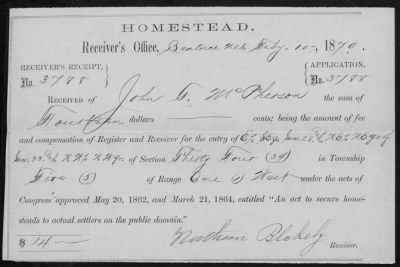 HOMESTEAD.
Receiver's Office, Beatrice Neb Feby. 10th, 1870.
RECEIVER'S RECEIPT, APPLICATION,
No. 3788 No. 3788
RECEIVED OF John G. McPherson the sum
of Fourteen dollars cents; being the amount of fee
and compensation of Register and Receiver for the entry of
of Section Thirty Four (34) in Township
Five (5) of Range One (1) West under the acts of
Congress approved May 20, 1862, and March 21, 1864, entitled "An act to secure home-
steads to actual settlers on the public domain."
$ 14 — Nathan Blakely
Receiver.